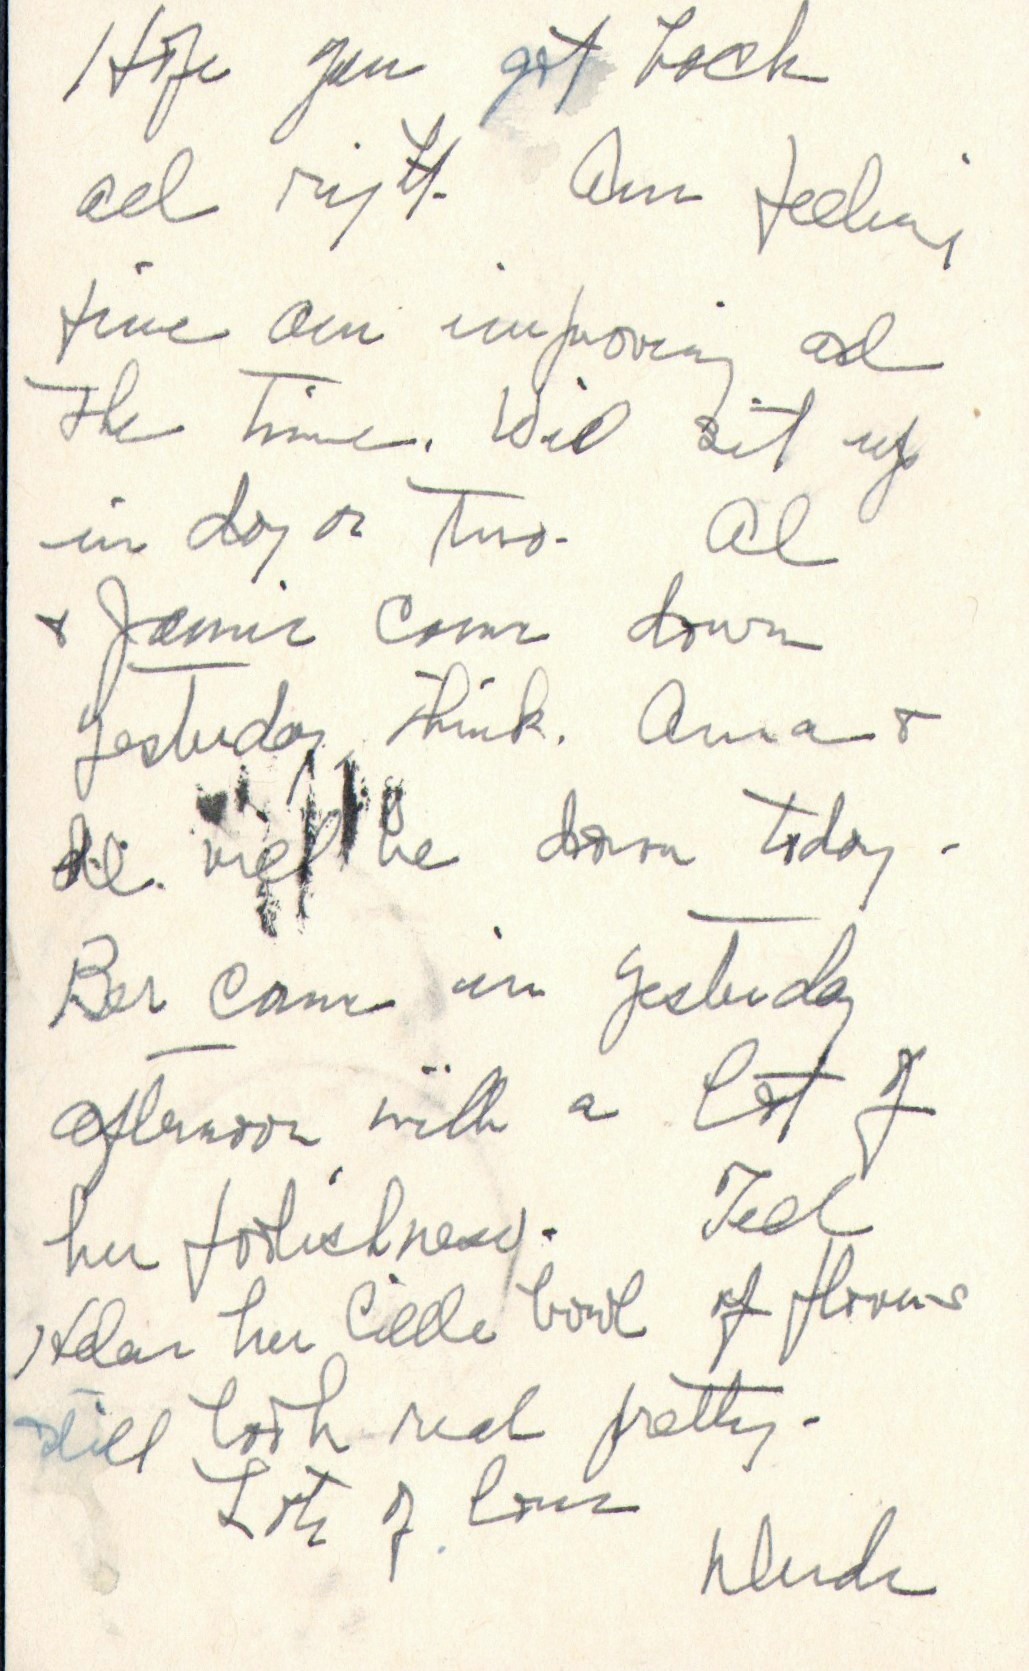 Hope you got back
all right. Am feeling
fine am improving all
the time. Will sit up
in day or two. Al
& Jamie came down
yesterday think. Anna &
Al. will be down today.
Ber came in yesterday
afternoon with a lot of
her foolishness. Tell
Helen her little bowl of flowers
still look real pretty.
Lots of love